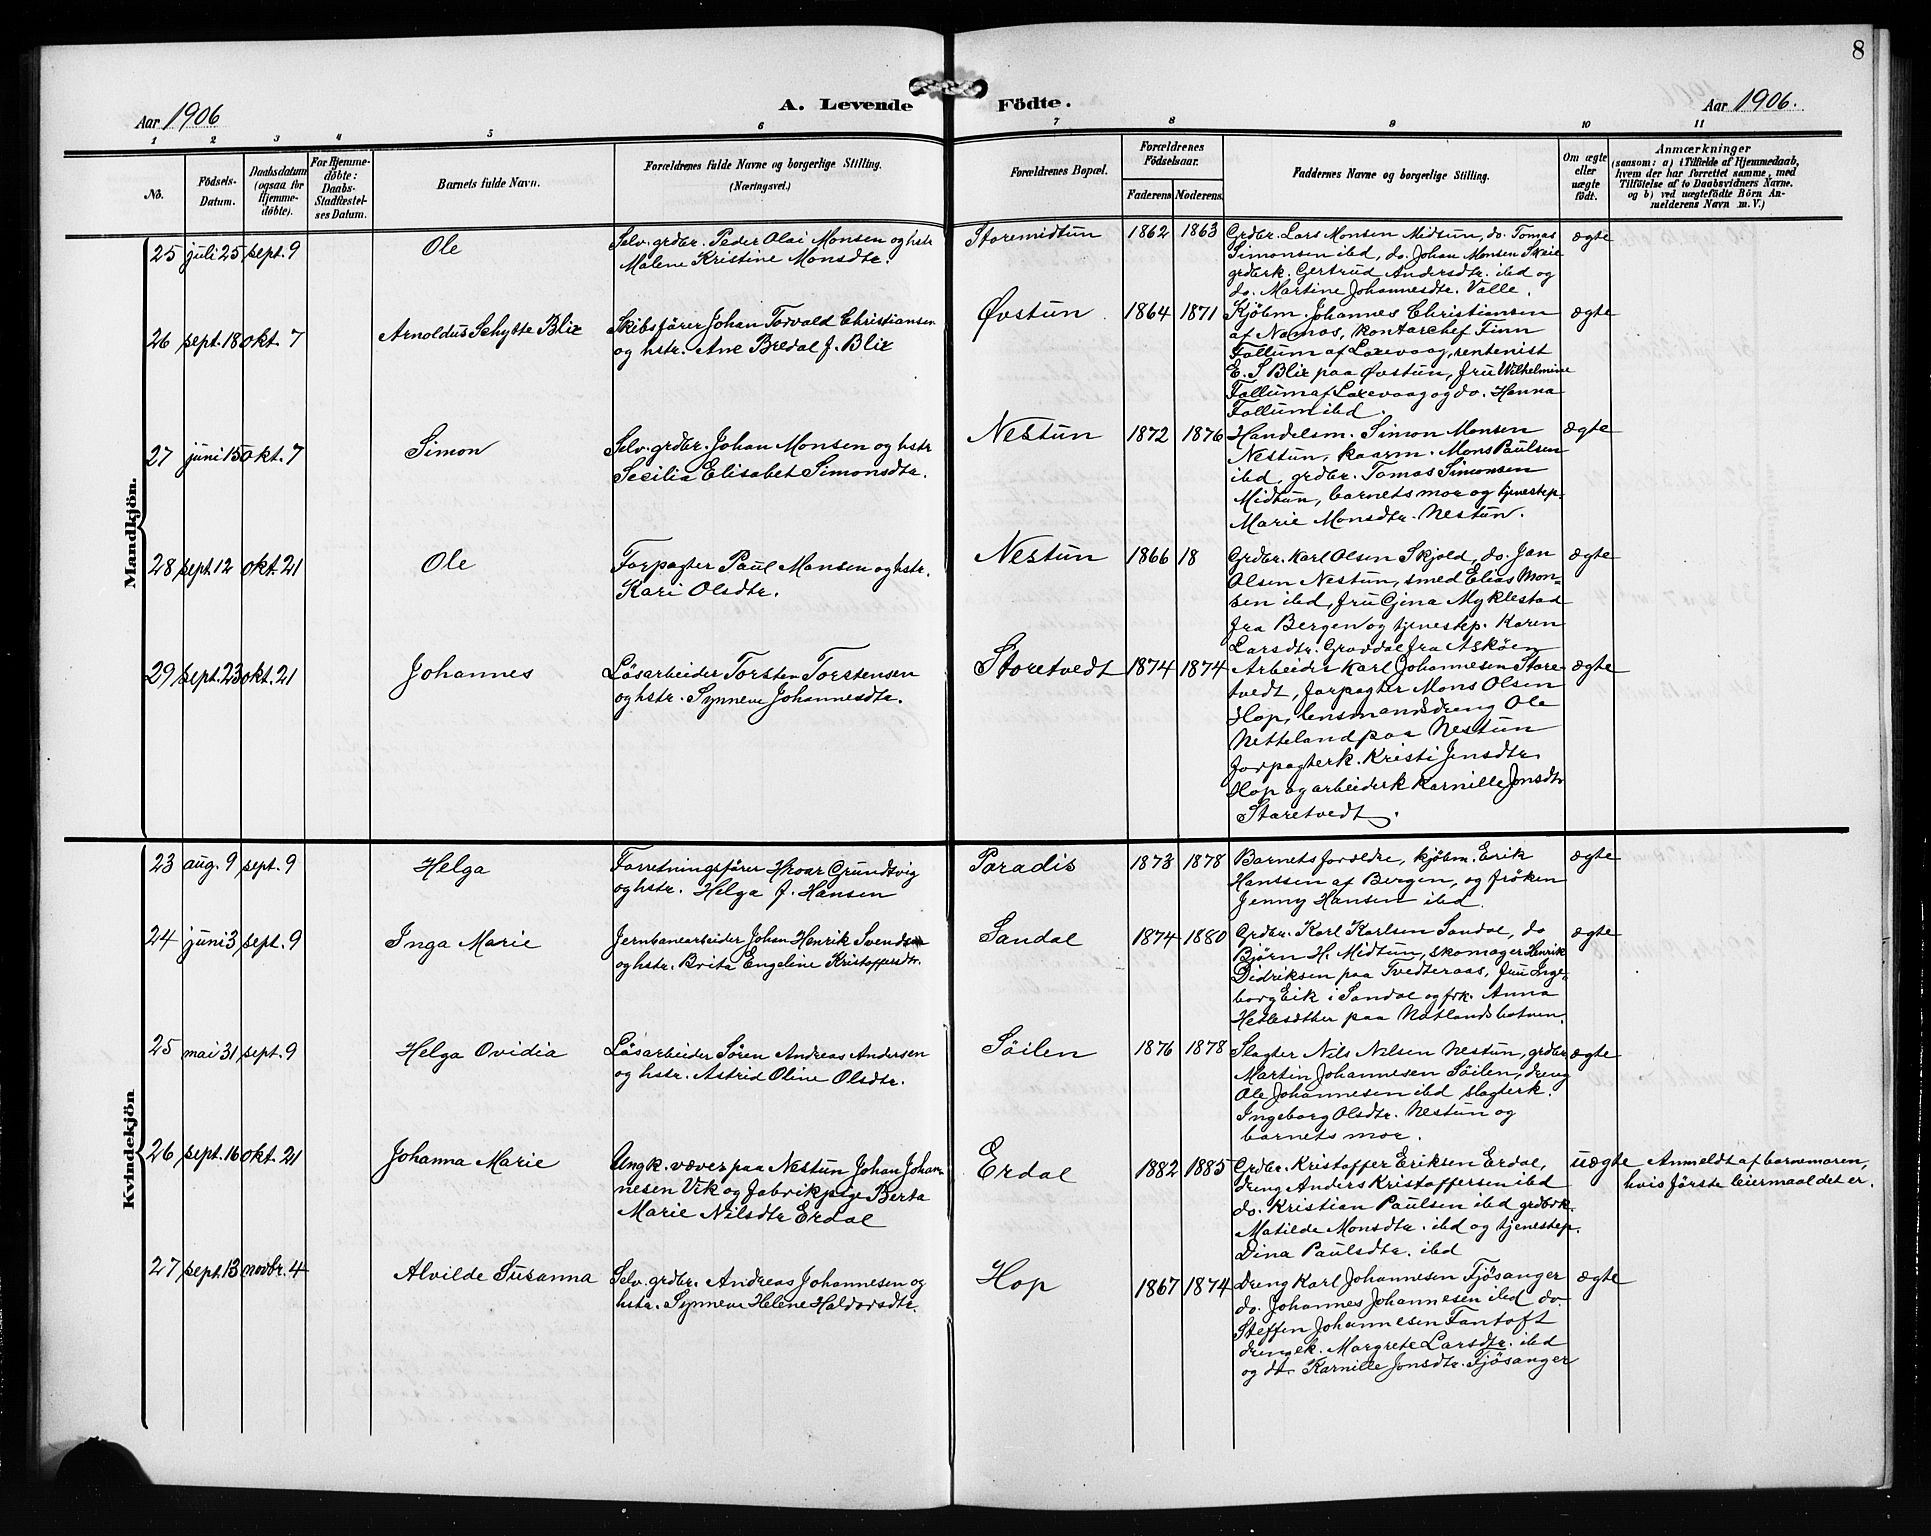 8
Aar 1906
A. Levende Födte.
Aar 1906.
1 2 3 4 5 6 7 8 9 10 11
No.
Födsels-
Datum.
Daabsdatum
(ogsaa for
Hjemme-
döbte).
For Hjemme-
döbte:
Daabs-
Stadfæstel-
ses Datum.
Barnets fulde Navn.
Forældrenes fulde Navne og borgerlige Stilling.
(Næringsvei.)
Forældrenes Bopæl.
Forældrenes
Födselsaar.
Faderens Moderens.
Faddernes Navne og borgerlige Stilling.
Om ægte
eller
uægte
födt.
Anmærkninger
(saasom: a) i Tilfælde af Hjemmedaab,
hvem der har forrettet samme, med
Tilföielse af to Daabsvidners Navne.
og b) ved uægtefödte Börn An-
melderens Navn m. V.)
Mandkjön.
25 juli 25 sept. 9
Ole
Selv. grdbr. Peder Olai Monsen og hstr
Malene Kristine Monsdtr.
Storemidtun 1862 1863
Grdbr. Lars Monsen Midtun, do. Tomas
Simonsen ibd, do. Johan Monsen Skeie
grdbrk. Gertrud Andersdtr. ibd og
do. Martine Johannesdtr. Valle.
ægte
26 sept. 18 okt. 7
Arnoldus Schytte Blix
Skibsförer Johan Torvald Christiansen
og hstr. Ane Bredal f. Blix
Øvstun 1864 1871
Kjöbm. Johannes Christiansen
af Namos, kontorchef Finn
Follum af Laxevaag, rentenist
E. S Blix paa Øvstun, fru Wilhelmine
Follum af Laxevaag og do. Hanna
Follum ibd.
ægte
27 juni 15 okt. 7
Simon
Selv. grdbr. Johan Monsen og hstr
Secilia Elisabet Simonsdtr.
Nestun 1872 1876
Handelsm. Simon Monsen
Nestun, kaarm. Mons Paulsen
ibd, grdbr. Tomas Simonsen
Midtun, barnets mor og tjenestep.
Marie Monsdtr. Nestun.
ægte
28 sept. 12 okt. 21
Ole
Forpagter Paul Monsen og hstr.
Kari Olsdtr.
Nestun 1866 18
Grdbr. Karl Olsen Skjold, do. Jan
Olsen Nestun, smed Elias Mon-
sen ibd, fru Gjina Myklestad
fra Bergen og tjenestep. Karen
Larsdtr. Gravdal fra Asköen
ægte
29 sept. 23 okt. 21
Johannes
Lösarbeider Torsten Torstensen
og hstr. Synneve Johannesdtr.
Storetvedt 1874 1874
Arbeider Karl Johannesen Store-
tvedt, forpagter Mons Olsen
Hop, lensmannsdreng Ole
Netteland paa Nestun
forpagterk. Kristi Jensdtr.
Hop og arbeiderk Karnille Jonsdtr
Storetvedt.
ægte
Kvindekjön
23 aug. 9 sept. 9
Helga
Forretningsförer Hroar Grundtvig
og hstr. Helga f. Hansen
Paradis 1873 1878
Barnets forældre, kjöbm. Erik
Hanssen af Bergen, og fröken
Jenny Hansen ibd.
ægte
24 juni 3 sept. 9
Inga Marie
Jernbanearbeider Johan Henrik Svendsen
og hstr. Brita Engeline Kristoffersdtr.
Sandal 1874 1880
Grdbr. Karl Karlsen Sandal, do
Björn H. Midtun, skomager Henrik
Didriksen paa Tvedteraas, fru Inge-
borg Eik i Sandal og frk. Anna
Hetlesæther paa Natlandsbotnen.
ægte
25 mai 31 sept. 9
Helga Ovidia
Lösarbeider Sören Andreas Andersen
og hstr. Astrid Oline Olsdtr.
Söilen 1876 1878
Slagter Nils Nilsen Nestun, grdbr
Martin Johannesen Söilen, dreng
Ole Johannesen ibd slagterk.
Ingeborg Olsdtr. Nestun og
barnets mor.
ægte
26 sept. 16 okt. 21
Johanna Marie
Ungk. væver paa Nestun Johan Johan-
nesen Vik og fabrikpige Berta
Marie Nilsdtr Erdal
Erdal 1882 1885
Grdbr. Kristoffer Eriksen Erdal,
dreng Anders Kristoffersen ibd
do. Kristian Paulsen ibd grdbrk.
Matilde Monsdtr. ibd og tjenestep.
Dina Paulsdtr. ibd
uægte
Anmeldt af barnemoren,
hvis förste leiermaal det er.
27 sept. 13 novbr. 4
Alvilde Susanna
Selv. grdbr. Andreas Johannesen og
hstr. Synneve Helene Haldorsdtr.
Hop 1867 1874
Dreng Karl Johannesen Fjösanger
do. Johannes Johannesen ibd do.
Steffen Johannesen Fantoft
drengk. Margrete Larsdtr. ibd
og do. Karnille Jonsdtr. Fjösanger
ægte